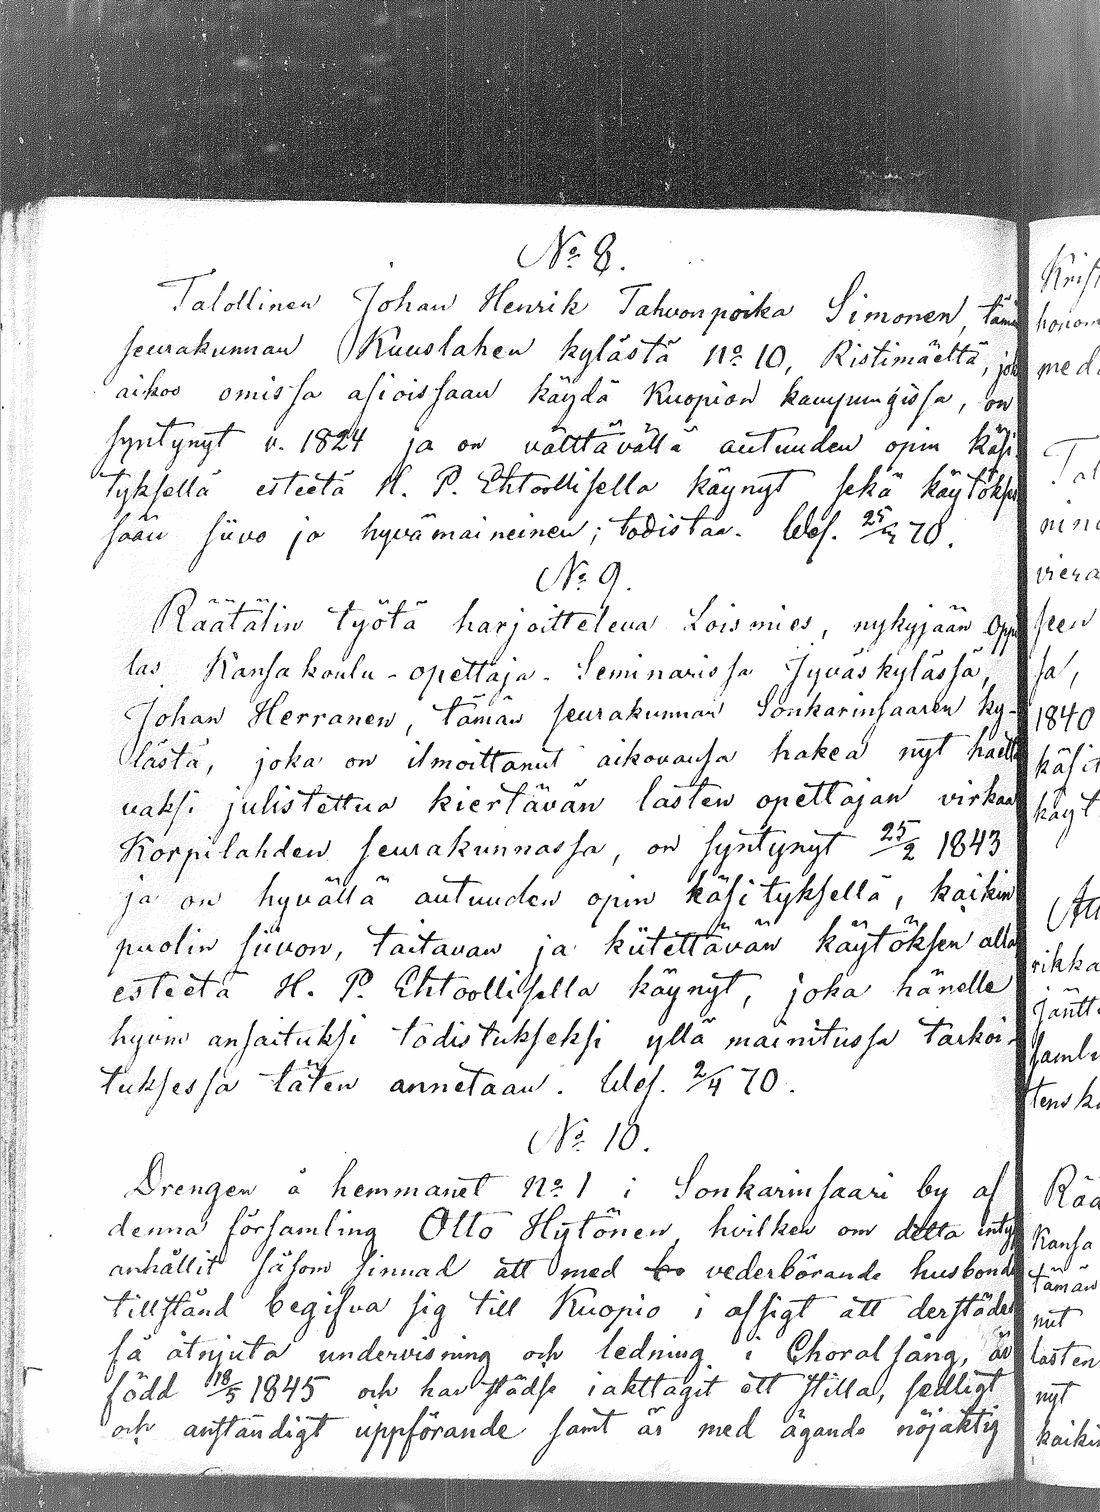 No 8.
Talollinen Johan Henrik Tahvonpoika Simonen, tämä
seurakunnan Kuuslahen kylästä No 10, Ristimäeltä, jok
aikoo omissa asioissaan käydä Kuopion kaupungissa, on
syntynyt v. 1824 ja on välttävällä autuuden opin käsi
tyksellä esteetä H. P. Ehtoollisella käynyt sekä käytökses
sään siivo ja hyvämaineinen; todistaa. Wes. 70.
No 9.
Räätälin työtä harjoitteleva Loismies, nykyjään Opp
las Kansakoulu-opettaja-Seminarissa Jyväskylässä,
Johan Herranen, tämän seurakunnan Sonkarinsaaren ky-
lästä, joka on ilmoittanut aikovansa hakea nyt haetta
vaksi julistettua kiertävän lasten opettajan virkaa
Korpilahden seurakunnassa, on syntynyt 25/2 1843
ja on hyvällä autuuden opin käsityksellä, kaikin
puolin siivon, taitavan ja kiitettävän käytöksen alla
esteetä H. P. Ehtoollisella käynyt, joka hänelle
hyvin ansaituksi todistukseksi yllä mainitussa tarkoi-
tuksessa täten annetaan. Wes. 2/4 70.
No 10.
Drengen å hemmanet No 1 i Sonkarinsaari by af
denna församling Otto Hytönen, hvilken om detta intyg
anhållit såsom sinnad att med vederbörande husbonde
tillstånd begifva sig till Kuopio i afsigt att derstädes
få åtnjuta undervisning och ledning i Choralsång, är
född 18/5 1845 och har städse iakttagit ett stilla, sedligt
och anständigt uppförande samt är med ägande nöjaktig
Krist
honom
med
Tal
nine
viera
seen
sa,
1840
käsit
käyt
rikka
Jäntt
samli
tens k
Rää
Kansa
tämän
nut
lasten
nyt
kaikin